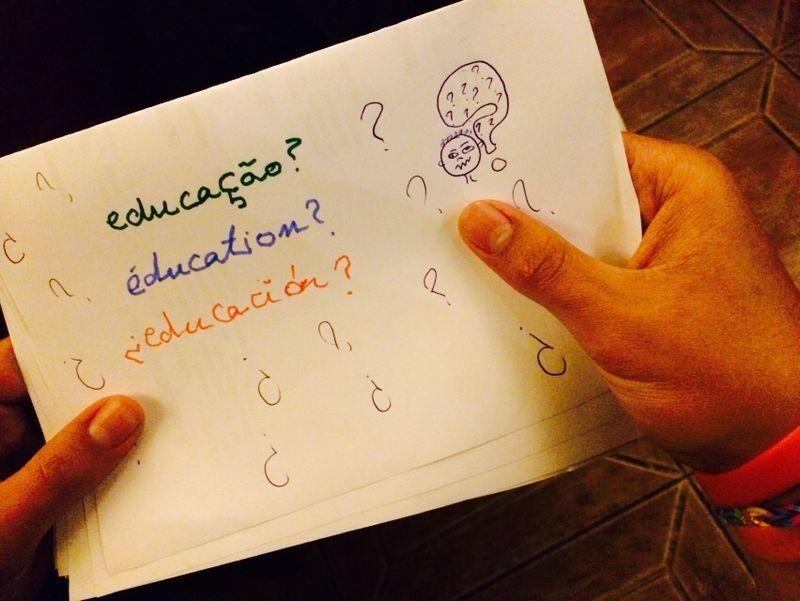 educação?
éducation?
¿educación?